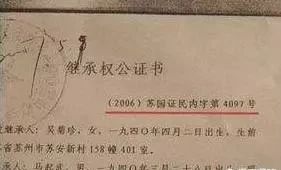 继承权公证书
（2006）苏国证民内字第 4097 号
继承人：吴菊珍，女，一九四〇年四月二日出生，生前
省苏州市苏安新村 158 幢 401 室。
承人：马起武，男，一九四〇年三月二十八日出生，